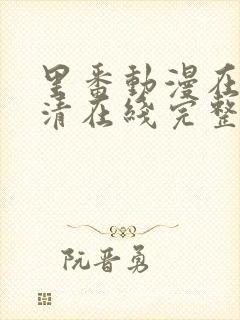 里番動漫在
清在綫完整
阮晋勇